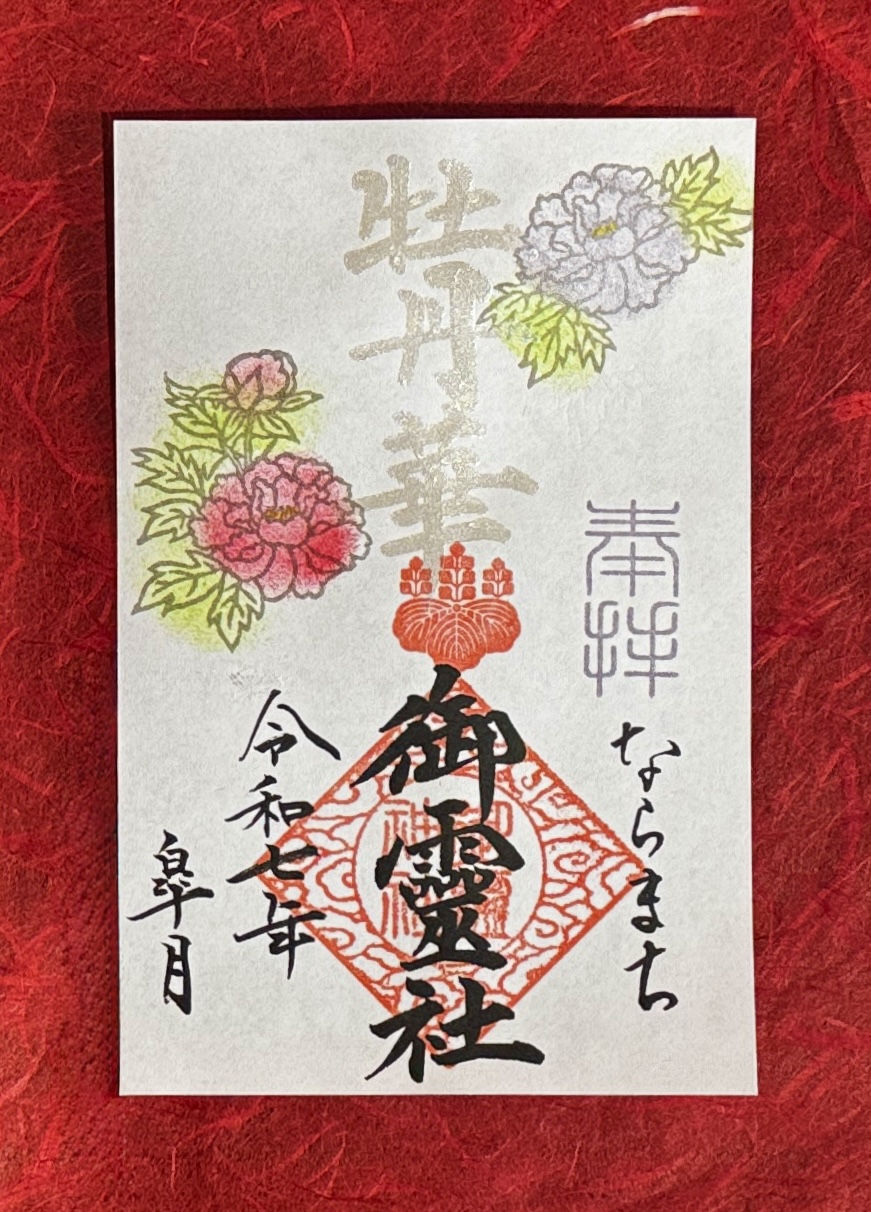 奉拝
ならまち
牡丹華
御靈社
令和七年
皐月